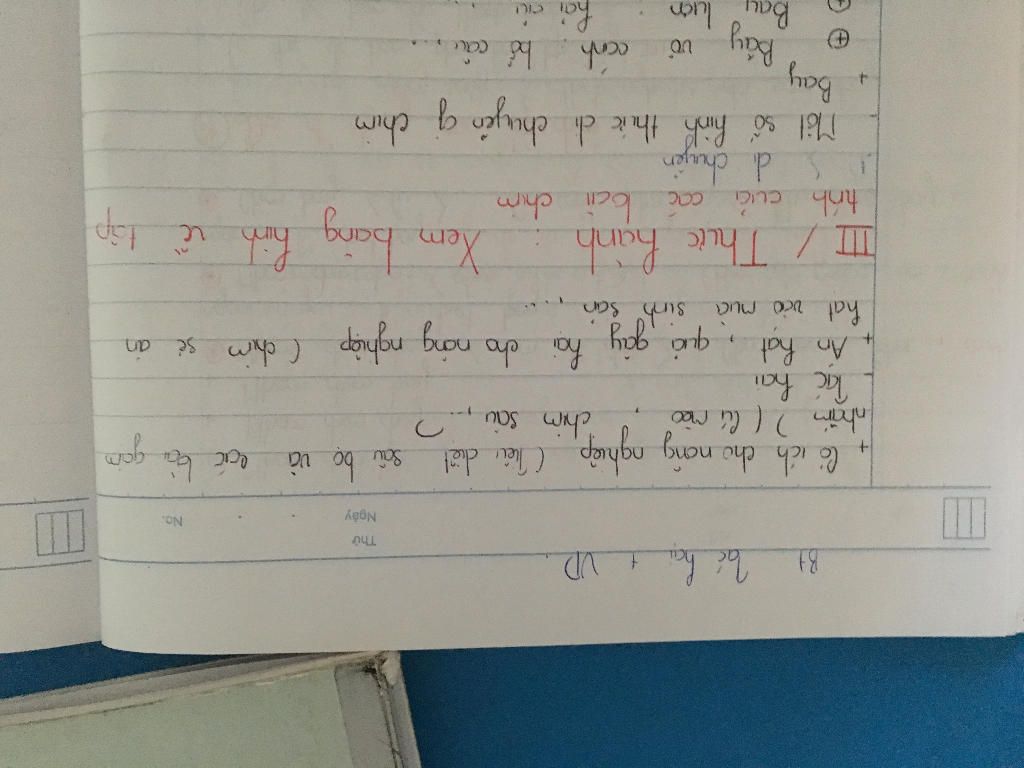 Bt tác hại + VD.
Thứ
Ngày No.
+ Có ích cho nông nghiệp (Tiêu diệt sâu bọ và các loài gặm
nhấm) (cú mèo, chim sáo,...)
- Tác hại
+ Ăn hạt, quả gây hại cho nông nghiệp (chim sẻ ăn
hạt vào mùa sinh sản,...
III / Thực hành : Xem băng hình về tập
tính của các loài chim
1) di chuyển
- Một số hình thức di chuyển ở chim
+ Bay
⊕ Bay vỗ cánh : bồ câu,...
⊕ Bay lượn : hải âu